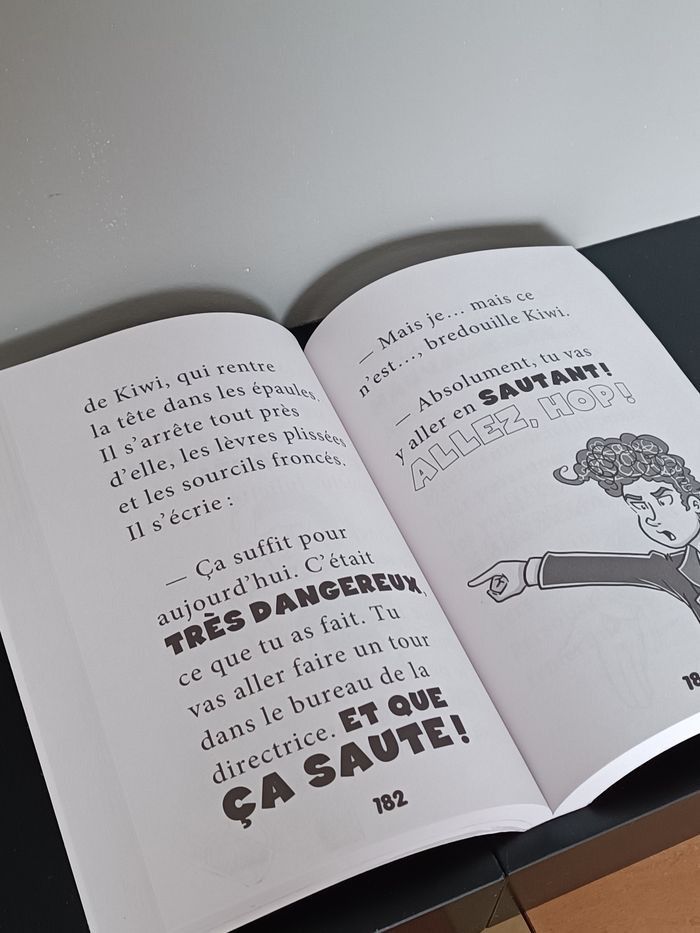 de Kiwi, qui rentre
la tête dans les épaules.
Il s'arrête tout près
d'elle, les lèvres plissées
et les sourcils froncés.
Il s'écrie :
— Ça suffit pour
aujourd'hui. C'était
TRÈS DANGEREUX,
ce que tu as fait. Tu
vas aller faire un tour
dans le bureau de la
directrice. ET QUE
ÇA SAUTE !
182
— Mais je… mais ce
n'est…, bredouille Kiwi.
— Absolument, tu vas
y aller en SAUTANT !
ALLEZ, HOP !